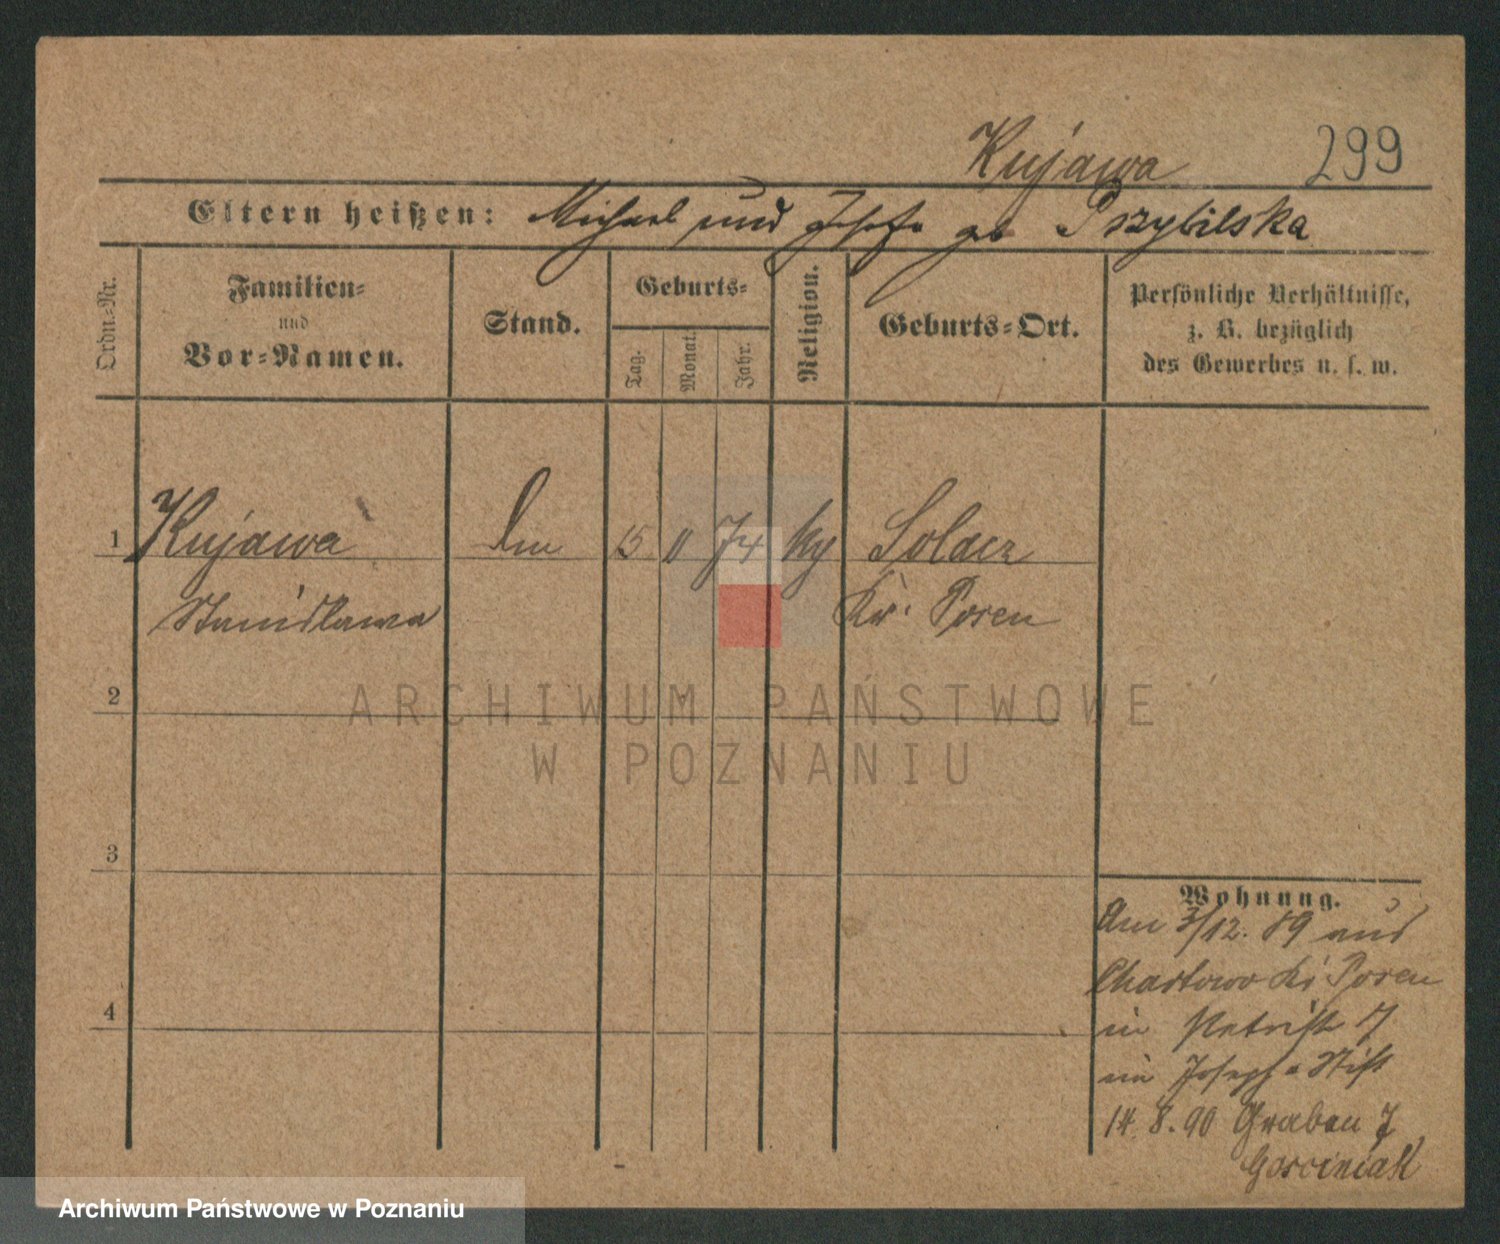 Kujawa 299
Eltern heißen: Michael und Josefa geb Przybilska
Ordn.-Nr.
Familien-
und
Vor-Namen.
Stand.
Geburts-
Tag. Monat. Jahr.
Religion.
Geburts-Ort.
Persönliche Verhältnisse,
z. B. bezüglich
des Gewerbes u. s. w.
1 Kujawa 15 11 74 Solacz
Stanislawa Kr. Posen
2
ARCHIWUM PAŃSTWOWE
W POZNANIU
3
4
Wohnung.
Am 3/12. 89 aus
Chartowo Kr Posen
in Petristr 7
im Joseph-Stift
14. 8. 90 Graben 7
Gorciniak
Archiwum Państwowe w Poznaniu